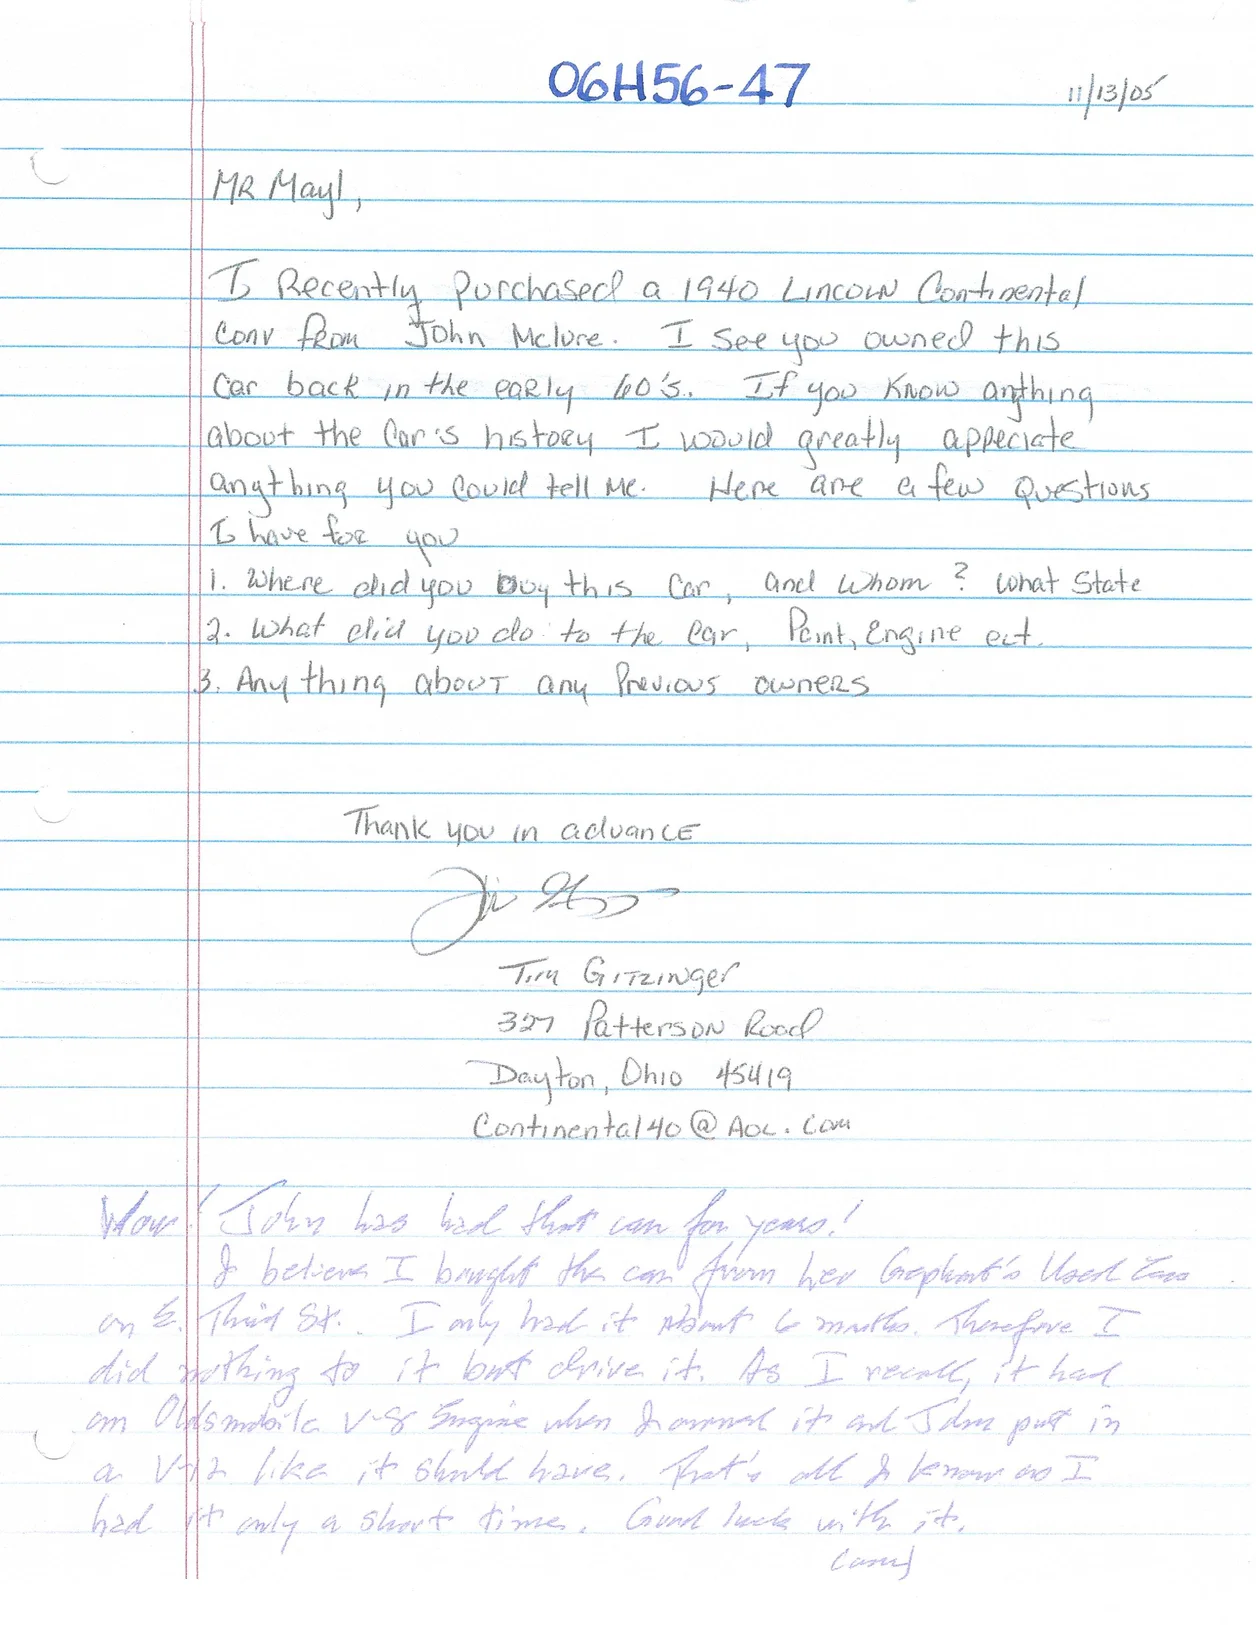 06H56-47
11/13/05
MR Mayl,
I Recently Purchased a 1940 Lincoln Continental
Conv from John McIure. I see you owned this
Car back in the early 60's. If you know anything
about the Car's history I would greatly appeciate
anything you Could tell me. Here are a few Questions
I have for you
1. Where did you buy this Car, and whom? What State
2. What did you do to the Car, Paint, Engine ect.
3. Anything about any Previous owners
Thank you in advance
Tim Gitzinger
327 Patterson Road
Dayton, Ohio 45419
Continental40@AOL.Com
Wow! John has had that car for years!
I believe I bought the car from Gephart's Used Cars
on E. Third St. I only had it about 6 months. Therefore I
did nothing to it but drive it. As I recall, it had
an Oldsmobile V-8 Engine when I owned it and John put in
a V-12 like it should have. That's all I know as I
had it only a short time. Good luck with it.